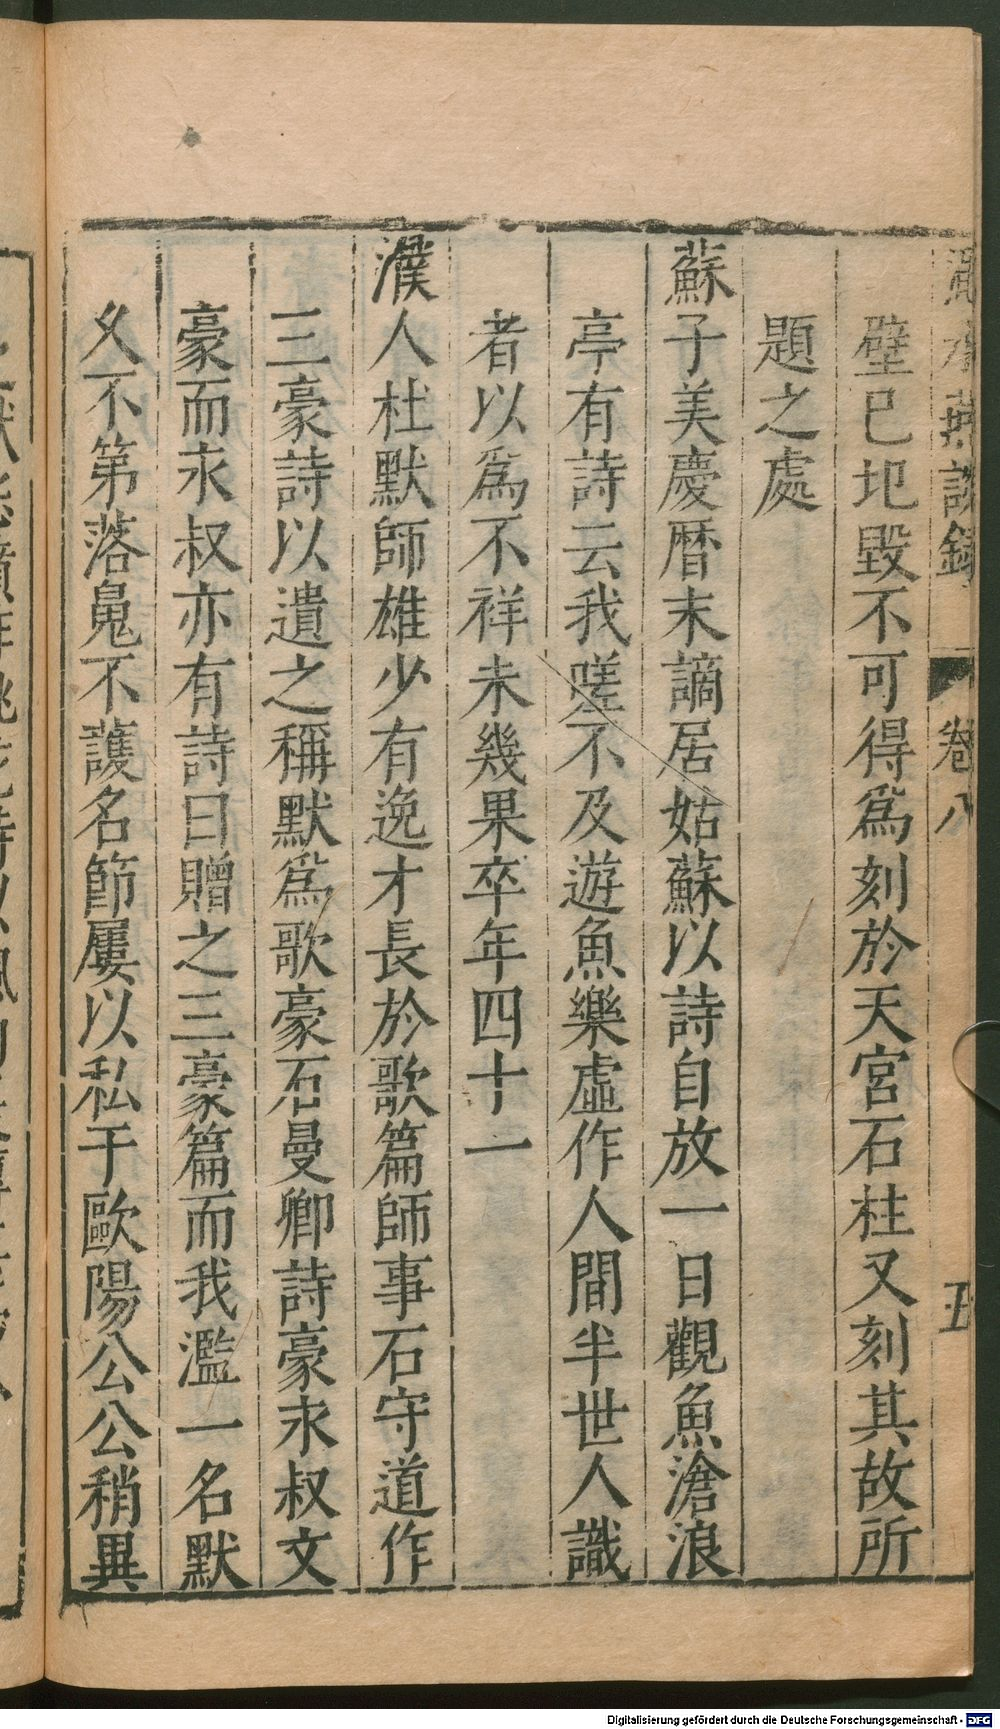 澠水燕談錄 卷八 五
壁已圯毀不可得爲刻於天宮石柱又刻其故所
題之處
蘇子美慶曆末謫居姑蘇以詩自放一日觀魚滄浪
亭有詩云我嗟不及遊魚樂虛作人間半世人識
者以爲不祥未幾果卒年四十一
濮人杜默師雄少有逸才長於歌篇師事石守道作
三豪詩以遺之稱默爲歌豪石曼卿詩豪永叔文
豪而永叔亦有詩曰贈之三豪篇而我濫一名默
久不第落魄不護名節屢以私干歐陽公公稍異
Digitalisierung gefördert durch die Deutsche Forschungsgemeinschaft - DFG